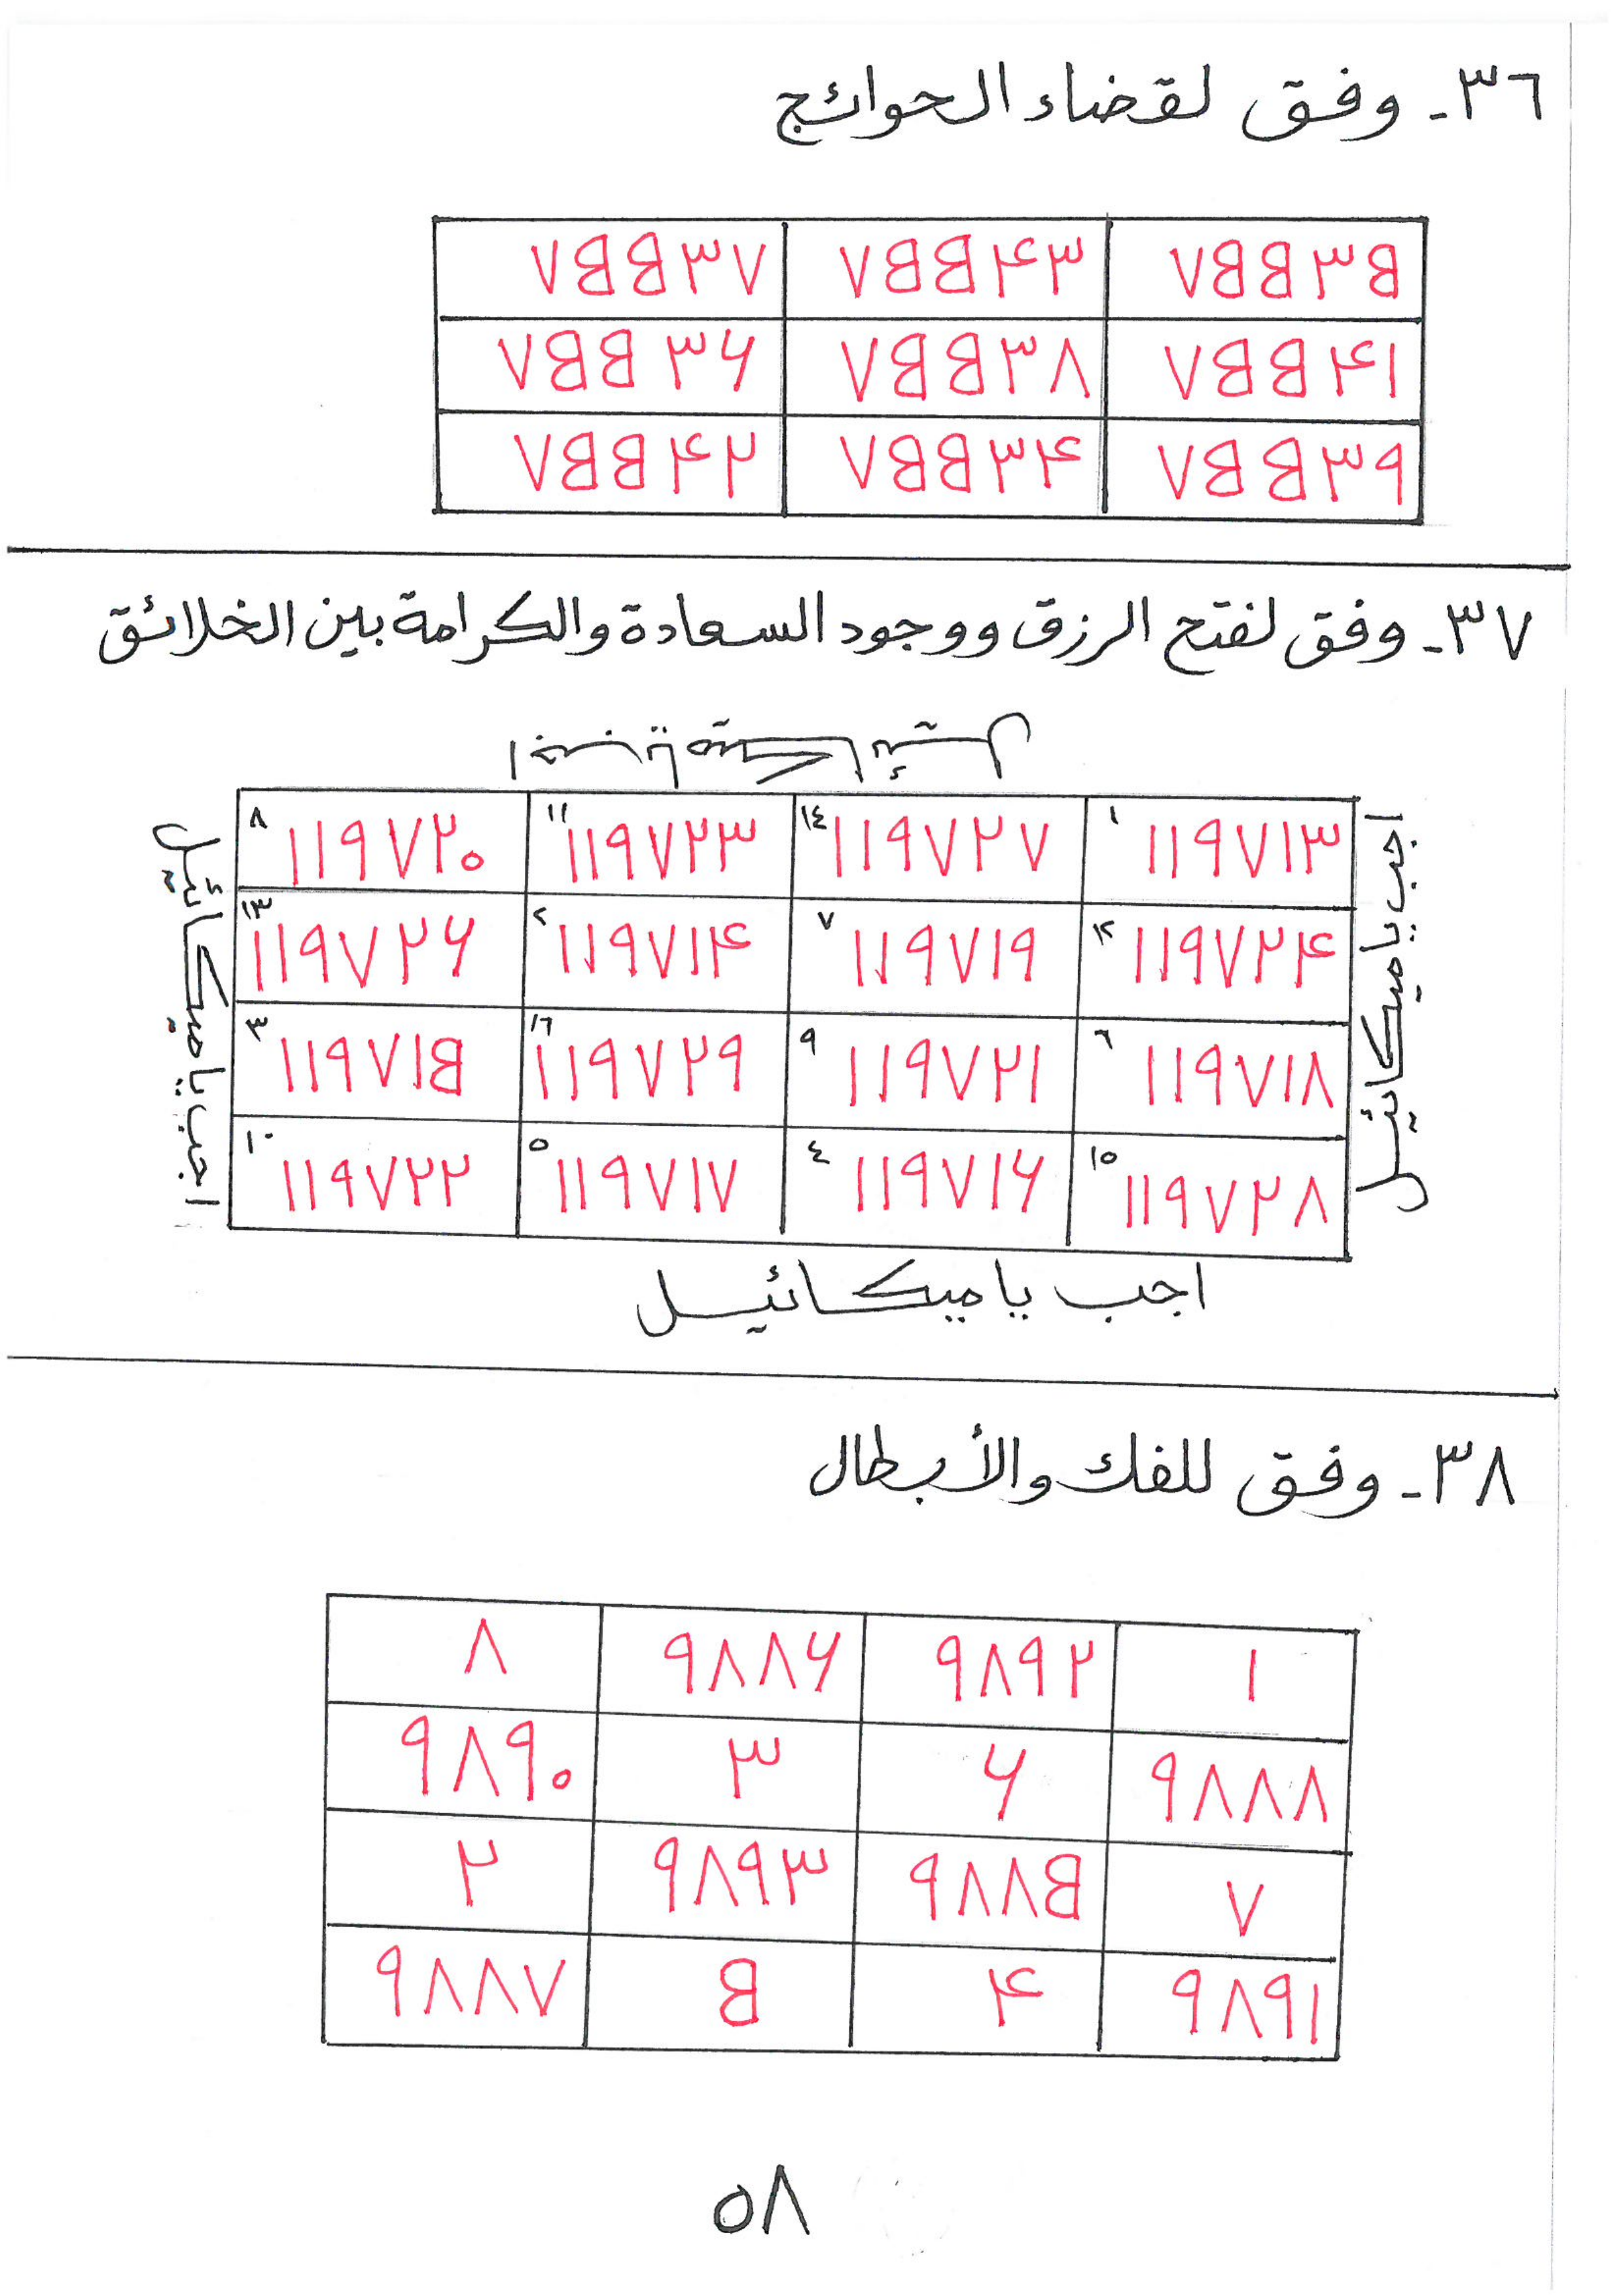 ٣٦- وفق لقضاء الحوائج
٧٥٥٣٥ ٧٥٥۴٣ ٧٥٥٣٧
٧٥٥۴١ ٧٥٥٣٨ ٧٥٥٣۶
٧٥٥٣٩ ٧٥٥٣۴ ٧٥٥۴٢
٣٧- وفق لفتح الرزق ووجود السعادة والكرامة بين الخلائق
اجب يا ميكائيل
١ ١١٩٧١٣ ١٤ ١١٩٧٢٧ ١١ ١١٩٧٢٣ ٨ ١١٩٧٢٠
١٢ ١١٩٧٢۴ ٧ ١١٩٧١٩ ٢ ١١٩٧١۴ ١٣ ١١٩٧٢۶
٦ ١١٩٧١٨ ٩ ١١٩٧٢١ ١٦ ١١٩٧٢٩ ٣ ١١٩٧١٥
١٥ ١١٩٧٢٨ ٤ ١١٩٧١۶ ٥ ١١٩٧١٧ ١٠ ١١٩٧٢٢
اجب يا ميكائيل
اجب يا ميكائيل
اجب يا ميكائيل
٣٨- وفق للفك والأبطال
١ ٩٨٩٢ ٩٨٨۶ ٨
٩٨٨٨ ۶ ٣ ٩٨٩٠
٧ ٩٨٨٥ ٩٨٩٣ ٢
٩٨٩١ ۴ ٥ ٩٨٨٧
٥٨